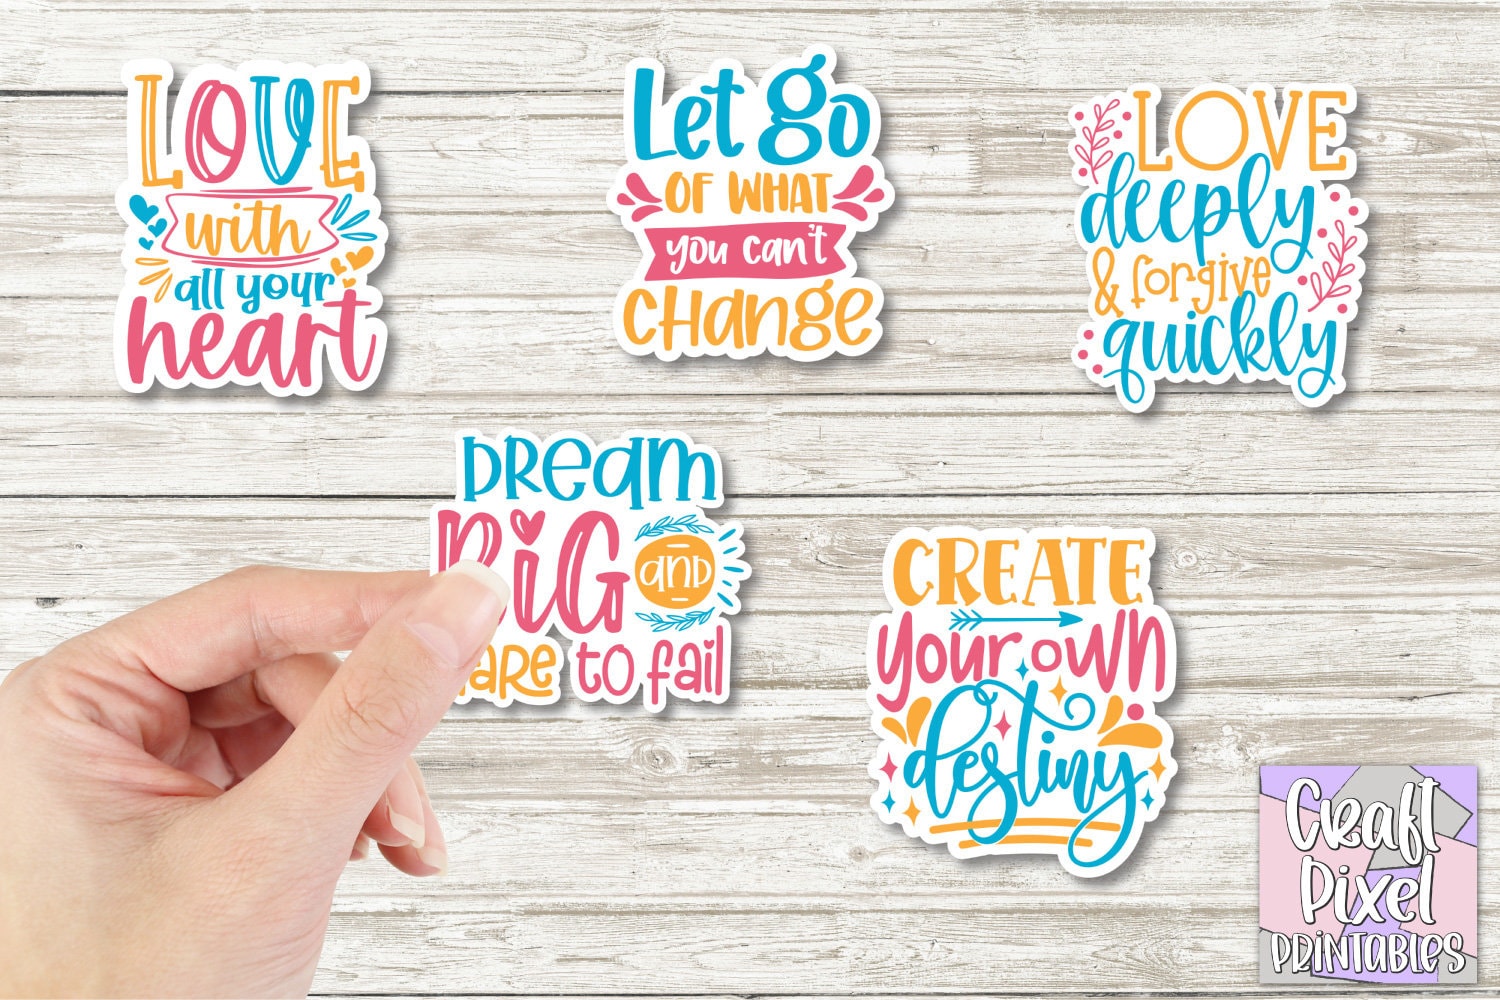 LOVE
with
all your
heart
Let go
OF WHAT
you can't
CHange
LOVE
deeply
& forgive
quickly
DReam
BiG and
to fail
CREATE
your own
destiny
Craft
Pixel
PRINTABLES